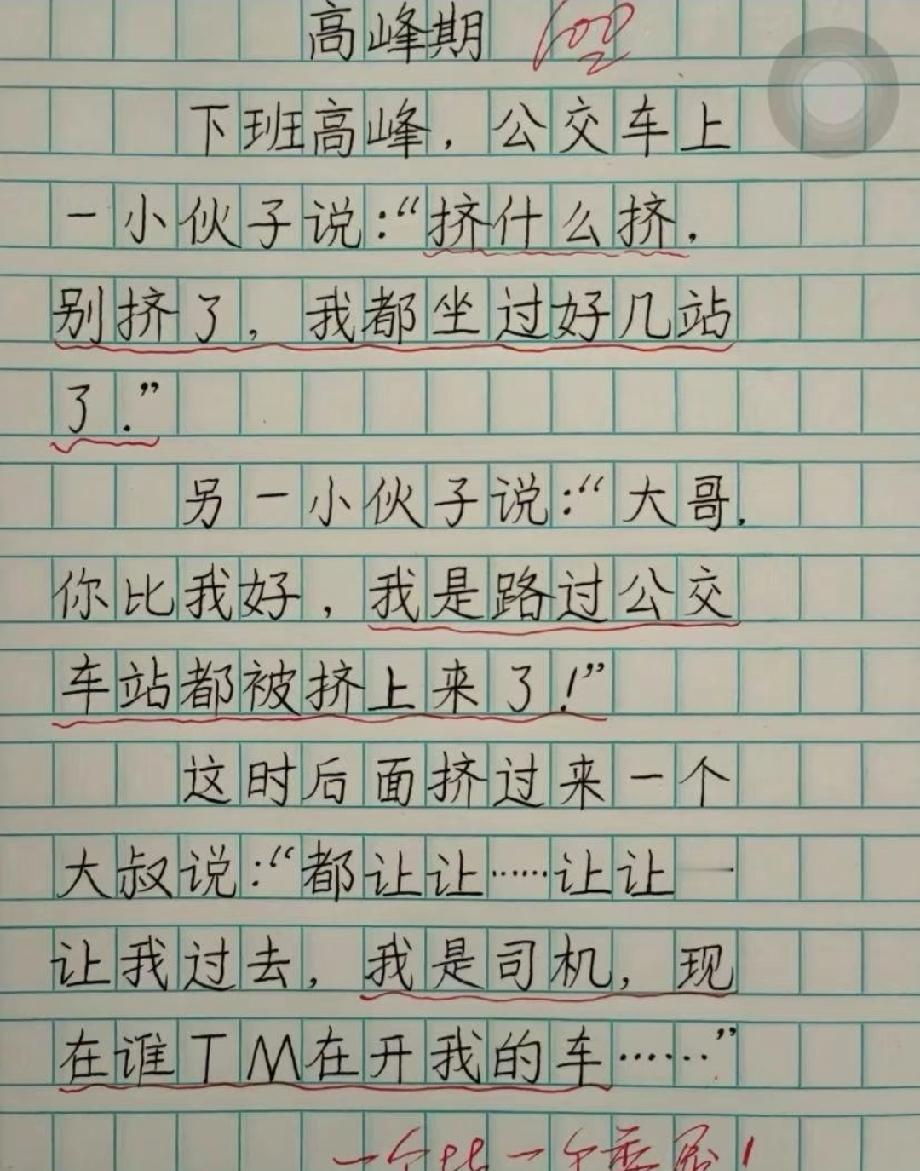 高峰期 100
下班高峰，公交车上
一小伙子说：“挤什么挤，
别挤了，我都坐过好几站
了.”
另一小伙子说：“大哥，
你比我好，我是路过公交
车站都被挤上来了！”
这时后面挤过来一个
大叔说：“都让让……让让一
让我过去，我是司机，现
在谁TM在开我的车……”
一个比一个委屈！